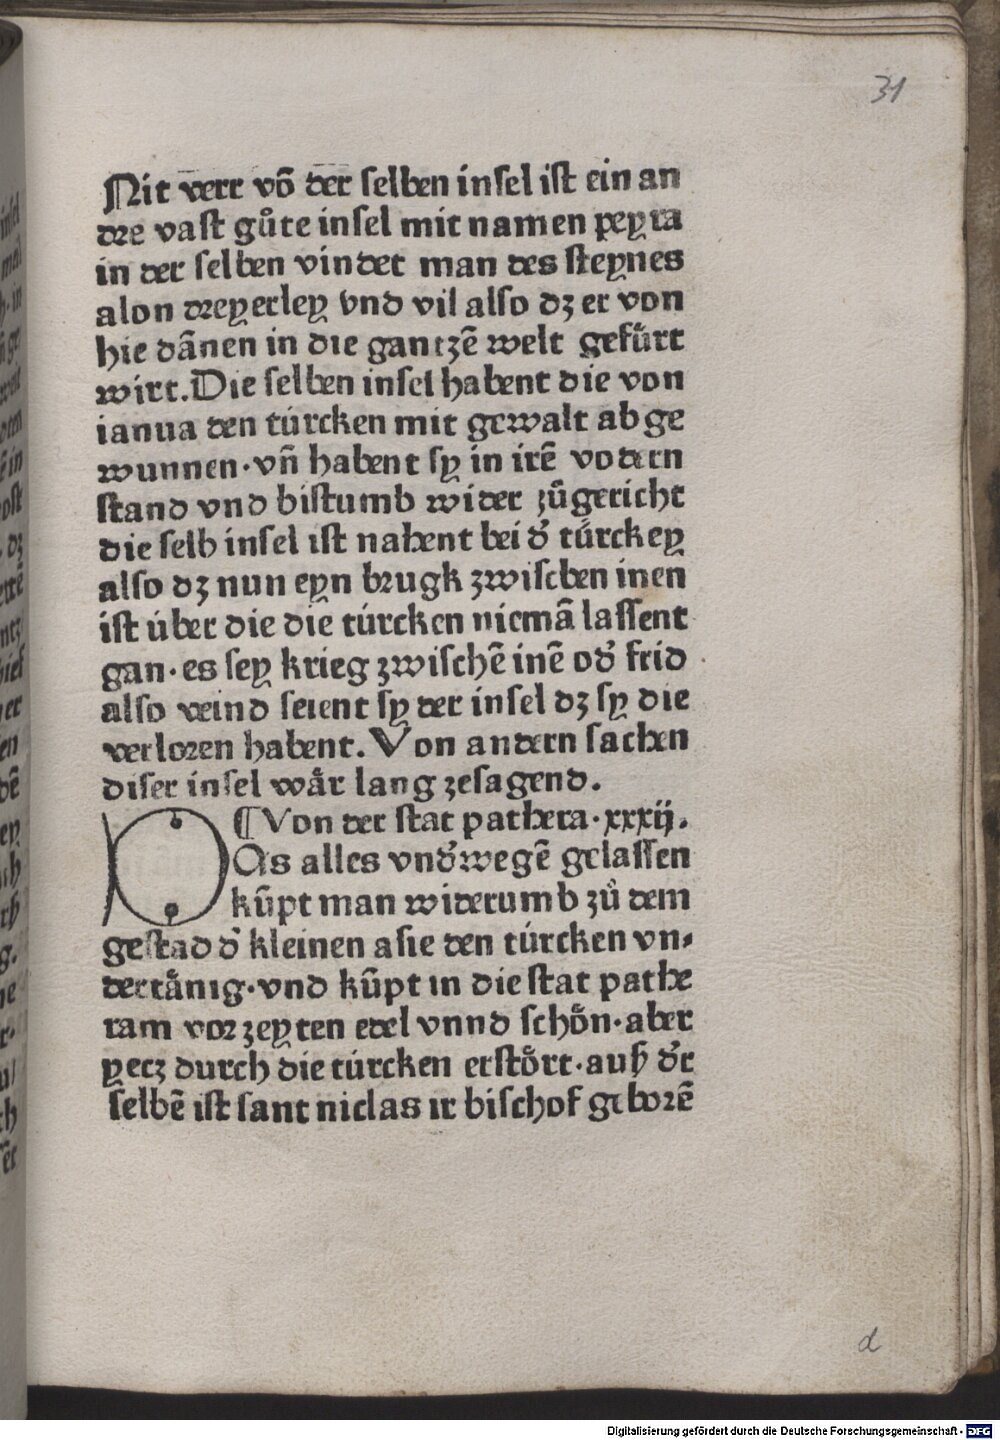 31
Nit verr võ der selben insel ist ein an
dre vast gůte insel mit namen peyra
in der selben vindet man des steynes
alon dreyerley vnd vil also dz er von
hie dãnen in die gantzẽ welt gefůrt
wirt. Die selben insel habent die von
ianua den túrcken mit gewalt ab ge
wunnen· vñ habent sy in irẽ vodern
stand vnd bistumb wider zůgericht
die selb insel ist nahent bei d̛ túrckey
also dz nun eyn brugk zwischen inen
ist úber die die túrcken niemã lassent
gan· es sey krieg zwischẽ inẽ od̛ frid
also veind seient sy der insel dz sy die
verloren habent. Von andern sachen
diser insel wår lang zesagend.
¶ Von der stat pathera· xxxij.
DAs alles vnd̛wegẽ gelassen
kũpt man widerumb zů dem
gestad d̛ kleinen asie den túrcken vn⸗
dertånig· vnd kũpt in die stat pathe
ram vor zeyten edel vnnd schôn· aber
yecz durch die túrcken erstôrt· auß d̛r
selbẽ ist sant niclas ir bischof geborẽ
d
Digitalisierung gefördert durch die Deutsche Forschungsgemeinschaft - DFG